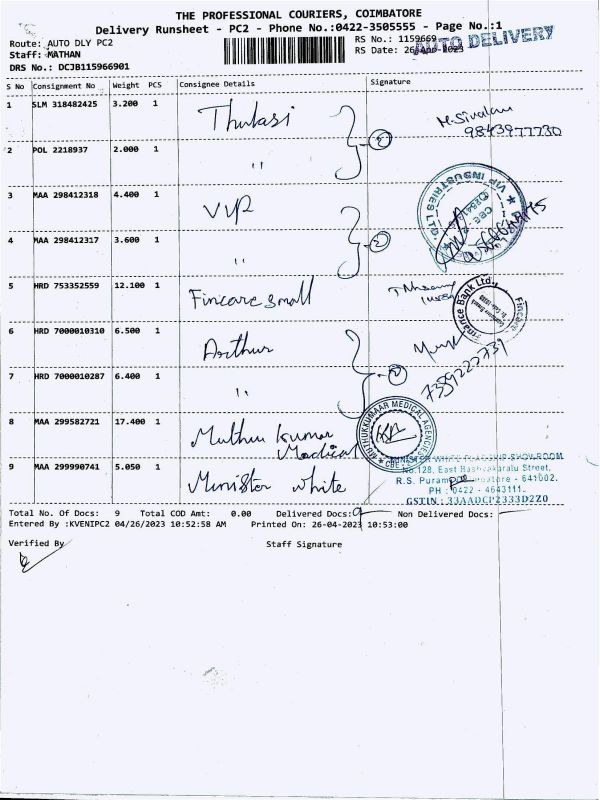 THE PROFESSIONAL COURIERS, COIMBATORE
Delivery Runsheet - PC2 - Phone No.:0422-3505555 - Page No.:1
Route: AUTO DLY PC2
RS No.: 1159669
AUTO DELIVERY
Staff: MATHAN
RS Date: 26-Apr-2023
DRS No.: DCJB115966901
S No Consignment No Weight PCS Consignee Details Signature
1 SLM 318482425 3.200 1 Thulasi M. Sivalan
9843977730
2
2 POL 2218937 2.000 1 "
3 MAA 298412318 4.400 1 VIP
VIP INDUSTRIES LTD
2
4 MAA 298412317 3.600 1 "
5 HRD 753352559 12.100 1 Fincare small
Fincare Finance Bank Ltd.
6 HRD 7000010310 6.500 1 Arthur
2
7359222739
7 HRD 7000010287 6.400 1 "
8 MAA 299582721 17.400 1 Muthu Kumar
Medical
MUTHUKKUMAAR MEDICAL AGENCIES
CBE
9 MAA 299990741 5.050 1 Minister white
MINISTER WHITE SHOWROOM
No.128, East Street,
R.S. Puram, Coimbatore - 641002.
PH : 0422 - 4643111.
GSTIN : 33AADCP2333D2Z0
Total No. Of Docs: 9 Total COD Amt: 0.00 Delivered Docs: 9 Non Delivered Docs: —
Entered By :KVENIPC2 04/26/2023 10:52:58 AM Printed On: 26-04-2023 10:53:00
Verified By Staff Signature